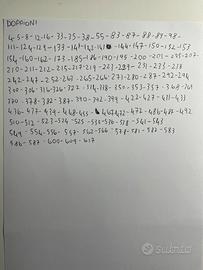 DOPPIONI
4-5-8-12-16-33-35-38-55-83-87-88-89-98-
111-124-129-133-141-142-161-144-147-150-152-153
154-160-162-173-185-186-190-195-200-201-205-207-
210-211-212-215-217-219-223-229-231-233-238
242-247-252-263-265-266-271-280-287-292-294
300-306-316-326-322-314-318-350-353-357-368-361
370-378-382-387-390-392-399-422-427-431-433
436-437-439-448-455-472-486-487-492
510-512-523-524-525-530-536-538-541-543
549-554-556-557-562-566-578-581-582-583
586-587-600-604-617
Subito